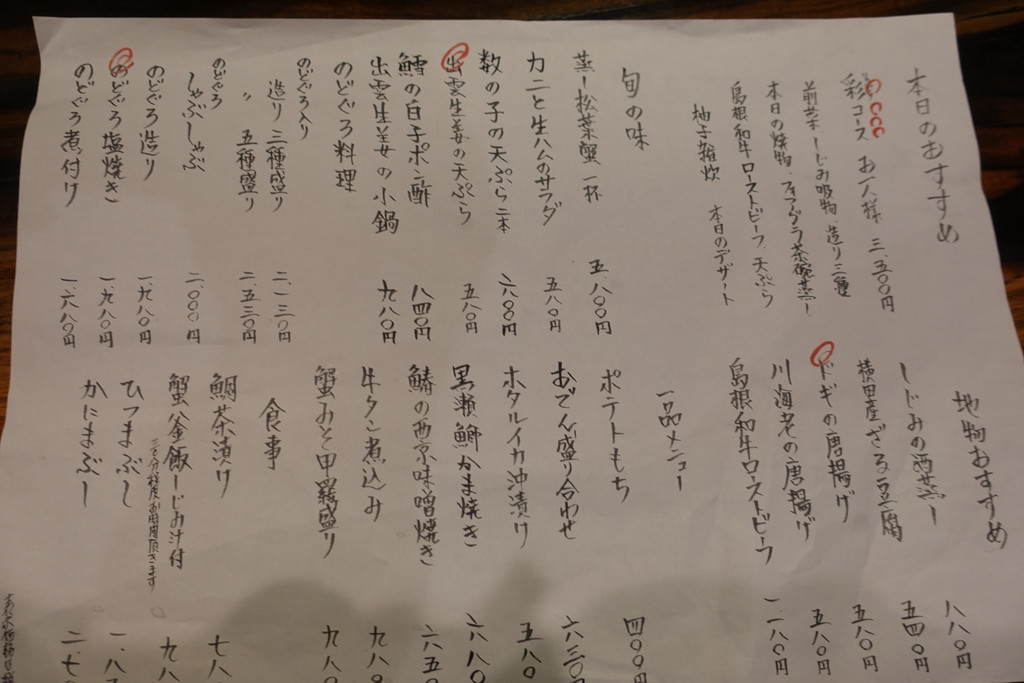 本日のおすすめ
彩コース お一人様 三、五〇〇円
前菜 しじみ吸物、造り三種
本日の焼物、フォアグラ茶碗蒸し
島根和牛ローストビーフ、天ぷら
柚子雑炊 本日のデザート
旬の味
蒸し松葉蟹 一杯 五、八〇〇円
カニと生ハムのサラダ 五八〇円
数の子の天ぷら二本 六八〇円
出雲生姜の天ぷら 五八〇円
鱈の白子ポン酢 八四〇円
出雲生姜の小鍋 九八〇円
のどぐろ料理
のどぐろ入り
造り 三種盛り 二、一三〇円
〃 五種盛り 二、五三〇円
のどぐろ
しゃぶしゃぶ 二、〇〇〇円
のどぐろ造り 一、九八〇円
のどぐろ塩焼き 一、九八〇円
のどぐろ煮付け 一、六八〇円
地物おすすめ
しじみの酒蒸し 八八〇円
横田産ざる豆腐 五四〇円
ドギの唐揚げ 五八〇円
川海老の唐揚げ 五八〇円
島根和牛ローストビーフ 一、八〇円
一品メニュー
ポテトもち 四〇〇円
おでん盛り合わせ 六三〇円
ホタルイカ沖漬け 五八〇
黒瀬鰤かま焼き 六八〇
鰆の西京味噌焼き 六五〇
牛タン煮込み 九八〇
蟹みそ甲羅盛り 九八〇
食事
鯛茶漬け 七八
蟹釜飯 しじみ汁付 九八
三十分程度お時間頂きます
ひつまぶし 一、八
かにまぶし 二、七